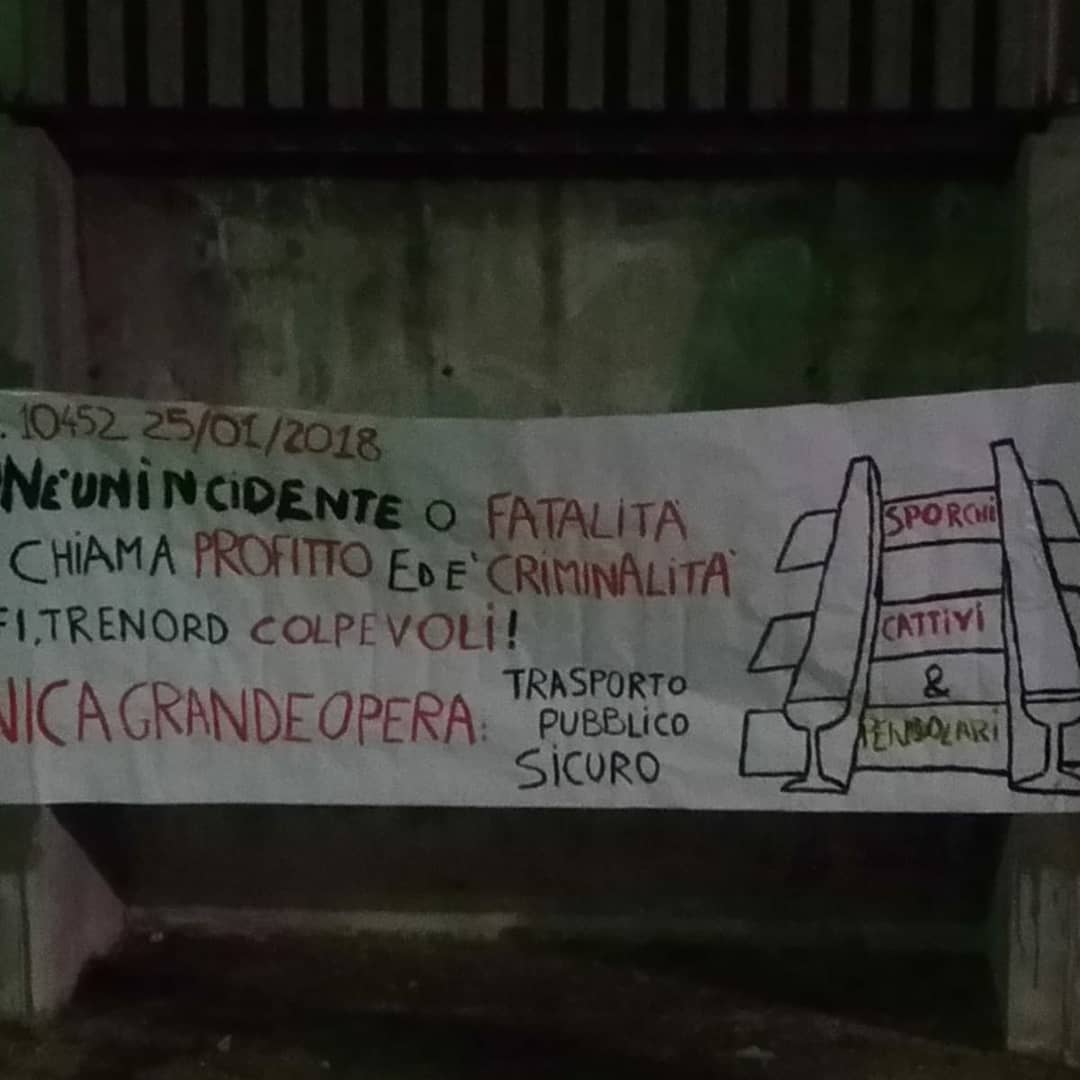 . 10452 25/01/2018
NE' UN iNCiDENTE O FATALiTA'
CHiAMA PROFITTO ED E' CRIMINALiTA'
FI, TRENORD COLPEVOLi!
NICA GRANDE OPERA:
TRASPORTO
PUBBLiCO
SiCURO
SPORCHi
CATTiVi
&
PENDOLARi